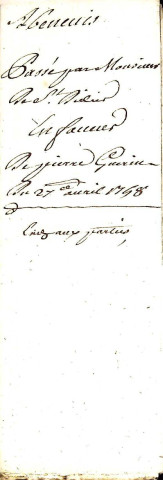 Abenevis
Passé par Monsieur
De St Didier
En faveur
De pierre Guerin
Du 27e avril 1758
aux parties